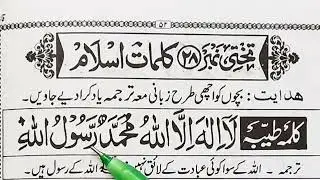 ۵۲
تختی نمبر (۲۸) کلمات اسلام
ھدایت: بچوں کو اچھی طرح زبانی معہ ترجمہ یاد کرا دیے جاویں۔
کلمہ طیبہ لَا اِلٰهَ اِلَّا اللهُ مُحَمَّدٌ رَّسُوْلُ اللهِ
ترجمہ ۔ اللہ کے سوا کوئی عبادت کے لائق نہیں اللہ کے رسول ہیں۔